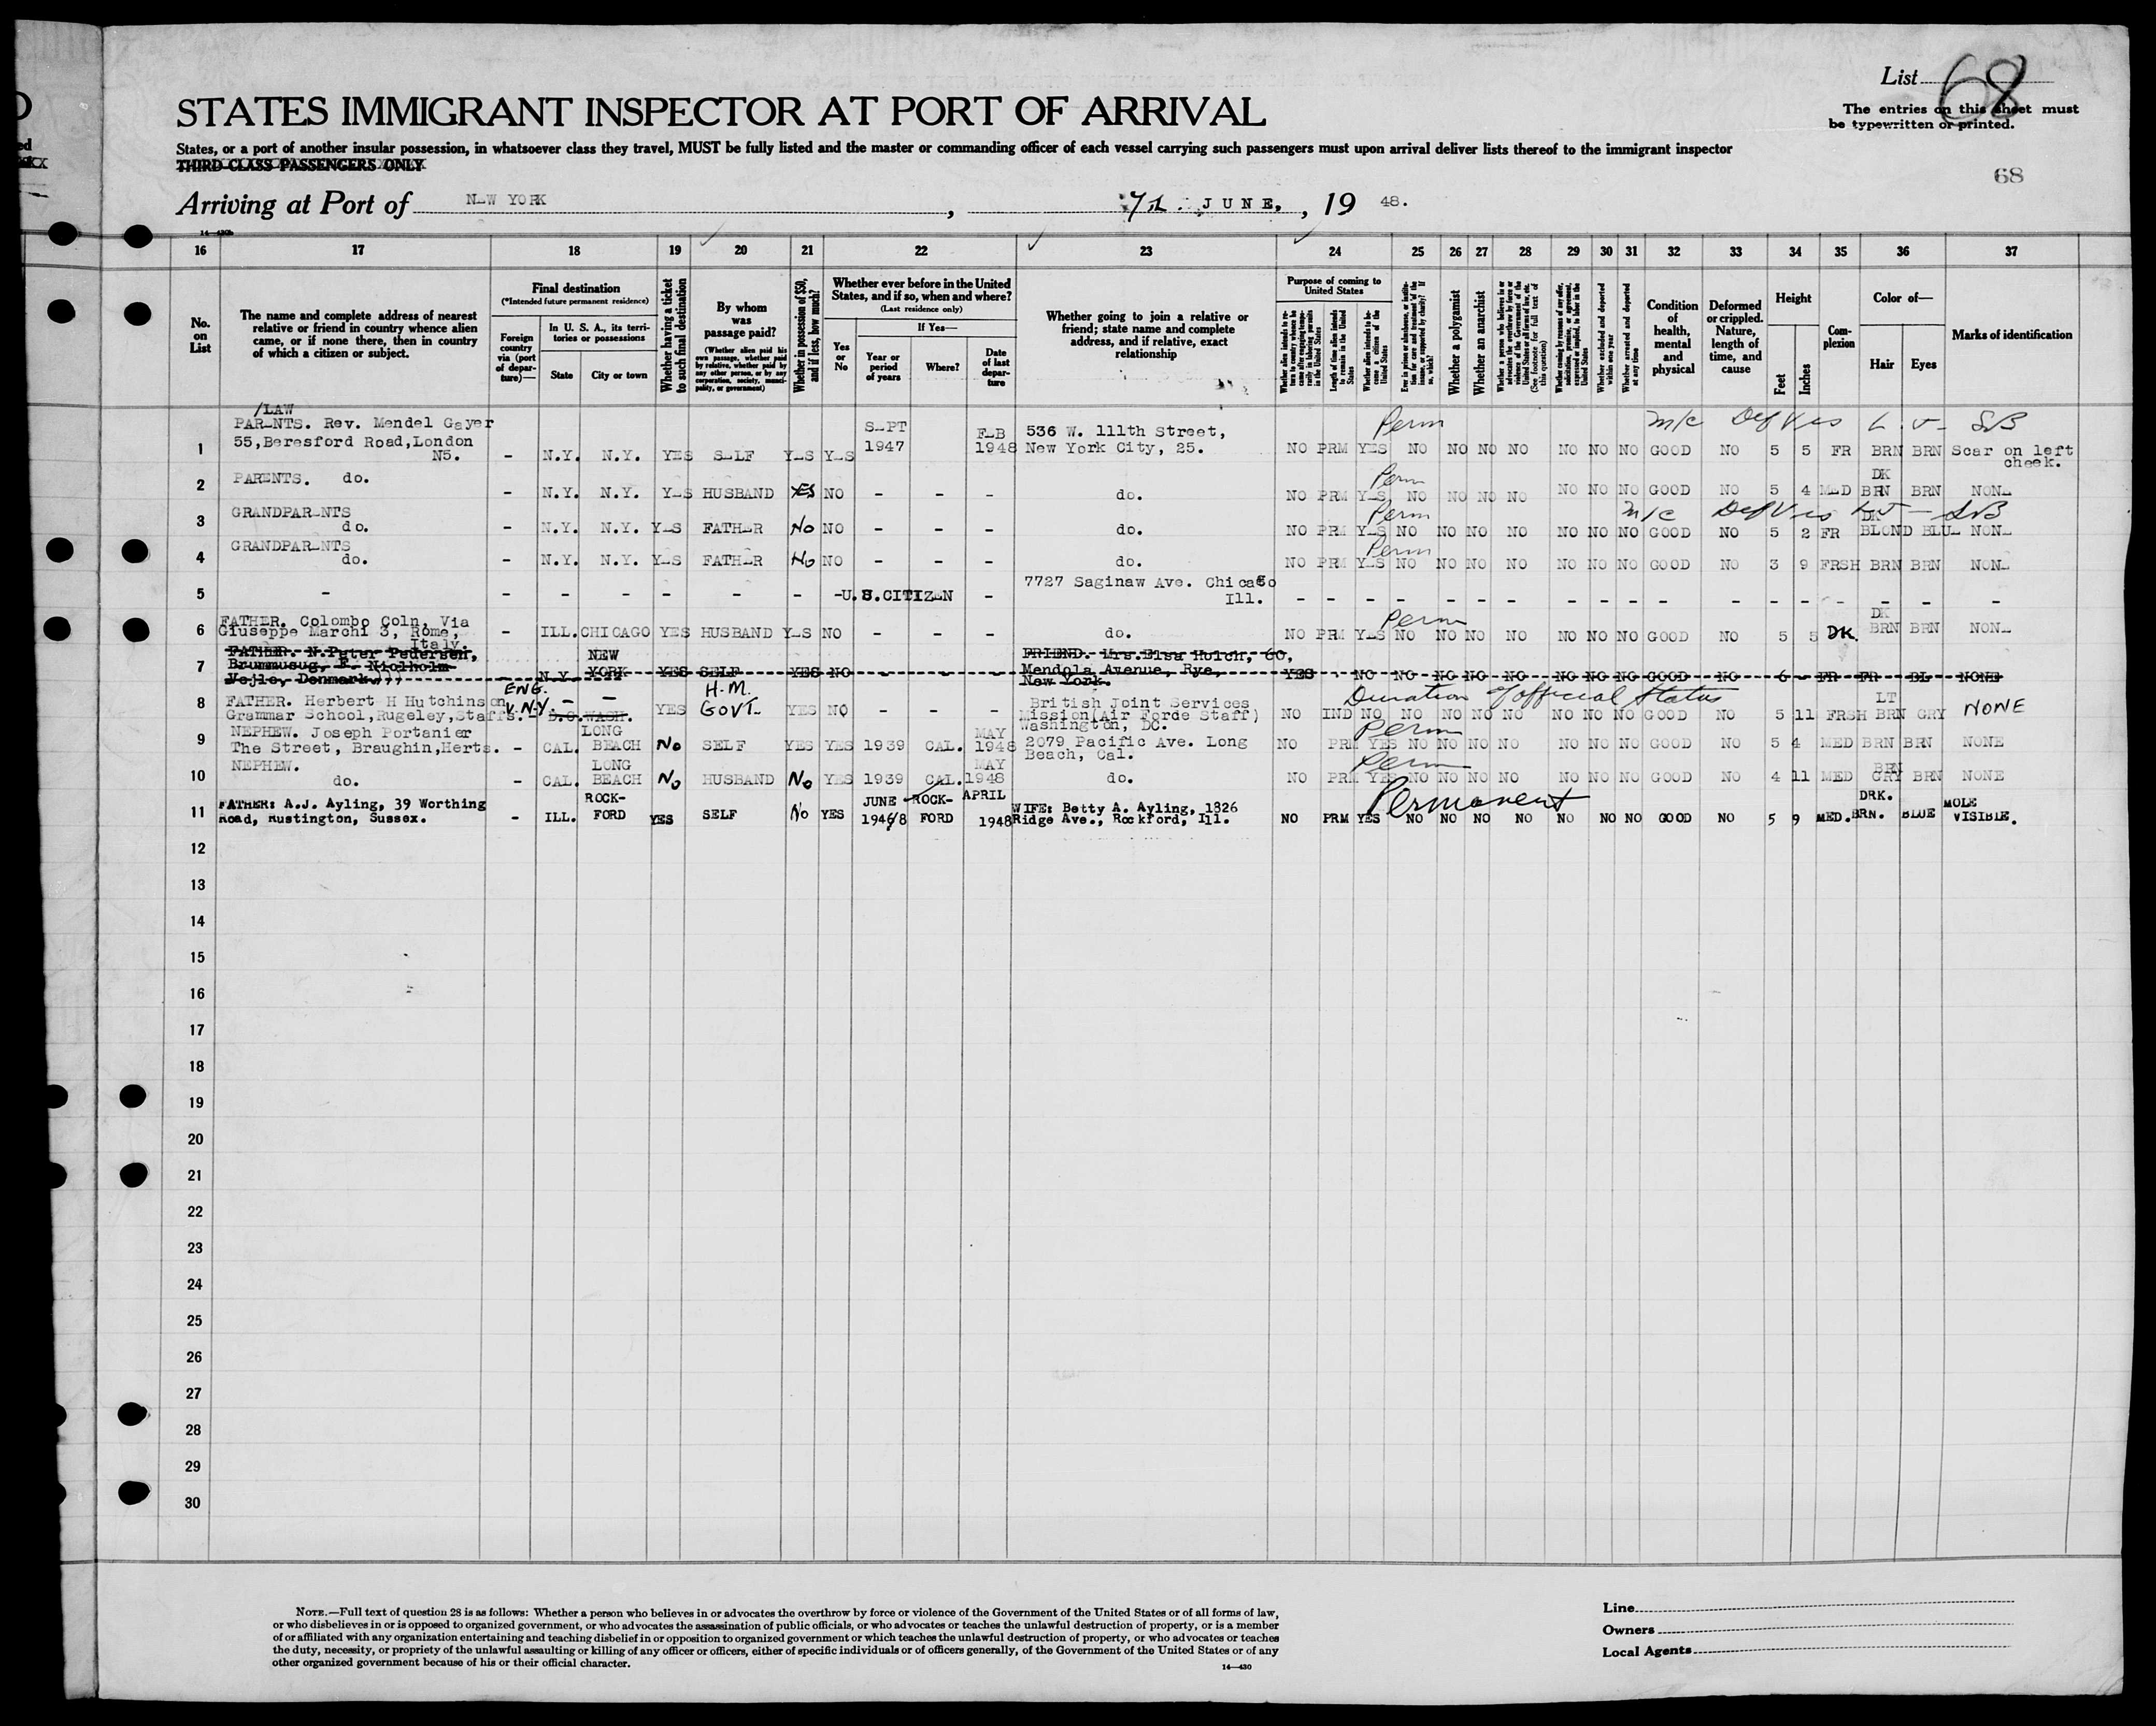 List 68
The entries on this sheet must
be typewritten or printed.
STATES IMMIGRANT INSPECTOR AT PORT OF ARRIVAL
States, or a port of another insular possession, in whatsoever class they travel, MUST be fully listed and the master or commanding officer of each vessel carrying such passengers must upon arrival deliver lists thereof to the immigrant inspector
THIRD CLASS PASSENGERS ONLY
68
Arriving at Port of NEW YORK, JUNE, 1948.
16 17 18 19 20 21 22 23 24 25 26 27 28 29 30 31 32 33 34 35 36 37
No. on List
The name and complete address of nearest relative or friend in country whence alien came, or if none there, then in country of which a citizen or subject.
Final destination
(*Intended future permanent residence)
Foreign country via (port of departure)—
In U. S. A., its territories or possessions
State
City or town
Whether having a ticket to such final destination
By whom was passage paid?
(Whether alien paid his own passage, whether paid by relative, whether paid by any other person, or by any corporation, society, municipality, or government)
Whether in possession of $50, and if less, how much?
Whether ever before in the United States, and if so, when and where?
(Last residence only)
Yes or No
If Yes—
Year or period of years
Where?
Date of last departure
Whether going to join a relative or friend; state name and complete address, and if relative, exact relationship
Purpose of coming to United States
Length of time alien intends to remain in the United States
Whether alien intends to become a citizen of the United States
Whether a polygamist
Whether an anarchist
Whether excluded and deported within one year
Whether arrested and deported at any time
Condition of health, mental and physical
Deformed or crippled. Nature, length of time, and cause
Height
Feet
Inches
Complexion
Color of—
Hair
Eyes
Marks of identification
1 /LAW PARENTS. Rev. Mendel Gayer 55, Beresford Road, London N5. - N.Y. N.Y. YES SELF YES YES SEPT 1947 FEB 1948 536 W. 111th Street, New York City, 25. Perm NO PRM YES NO NO NO NO NO NO NO GOOD NO 5 5 FR BRN BRN Scar on left cheek.
2 PARENTS. do. - N.Y. N.Y. YES HUSBAND YES NO - - - do. Perm NO PRM YES NO NO NO NO NO NO NO GOOD NO 5 4 MED DK BRN BRN NONE
3 GRANDPARENTS do. - N.Y. N.Y. YES FATHER No NO - - - do. Perm NO PRM YES NO NO NO NO NO NO NO GOOD NO 5 2 FR DK BLOND BLUE NONE
4 GRANDPARENTS do. - N.Y. N.Y. YES FATHER No NO - - - do. Perm NO PRM YES NO NO NO NO NO NO NO GOOD NO 3 9 FRSH BRN BRN NONE
5 - - - - - - - -U.S.CITIZEN - 7727 Saginaw Ave. Chicago Ill. - - - - - - - - - - - - - - - - - -
6 FATHER. Colombo Coln, Via Giuseppe Marchi 3, Rome, Italy. - ILL. CHICAGO YES HUSBAND YES NO - - - do. Perm NO PRM YES NO NO NO NO NO NO NO GOOD NO 5 5 DK. DK BRN BRN NONE
7 FATHER. N.Peter Pedersen, Vejle, Denmark N.Y. NEW YORK YES SELF YES NO FRIEND. Mrs.Elsa Hutch, 60, Mendola Avenue, Rye, New York. YES - NO NO NO NO NO NO NO NO GOOD NO 6 - FR FR BL NONE
8 FATHER. Herbert H Hutchinson Grammar School, Rugeley, Staffs. ENG. V. N.Y. - D.C. WASH. - YES H.M. GOVT. YES NO - - - British Joint Services Mission(Air Forde Staff) Washington, DC. Duration of official Status NO IND NO NO NO NO NO NO NO NO GOOD NO 5 11 FRSH LT BRN GRY NONE
9 NEPHEW. Joseph Portanier The Street, Braughin, Herts. - CAL. LONG BEACH No SELF YES YES 1939 CAL. MAY 1948 2079 Pacific Ave. Long Beach, Cal. Perm NO PRM YES NO NO NO NO NO NO NO GOOD NO 5 4 MED BRN BRN NONE
10 NEPHEW. do. - CAL. LONG BEACH No HUSBAND No YES 1939 CAL. MAY 1948 do. Perm NO PRM YES NO NO NO NO NO NO NO GOOD NO 4 11 MED BRN GRY BRN NONE
11 FATHER: A.J. Ayling, 39 Worthing Road, Rustington, Sussex. - ILL. ROCK-FORD YES SELF No YES JUNE 1946/8 ROCK-FORD APRIL 1948 WIFE: Betty A. Ayling, 1826 Ridge Ave., Rockford, Ill. Permanent NO PRM YES NO NO NO NO NO NO NO GOOD NO 5 9 MED. DRK. BRN. BLUE MOLE VISIBLE.
12
13
14
15
16
17
18
19
20
21
22
23
24
25
26
27
28
29
30
NOTE.—Full text of question 28 is as follows: Whether a person who believes in or advocates the overthrow by force or violence of the Government of the United States or of all forms of law,
or who disbelieves in or is opposed to organized government, or who advocates the assassination of public officials, or who advocates or teaches the unlawful destruction of property, or is a member
of or affiliated with any organization entertaining and teaching disbelief in or opposition to organized government or which teaches the unlawful destruction of property, or who advocates or teaches
the duty, necessity, or propriety of the unlawful assaulting or killing of any officer or officers, either of specific individuals or of officers generally, of the Government of the United States or of any
other organized government because of his or their official character.
14—430
Line
Owners
Local Agents